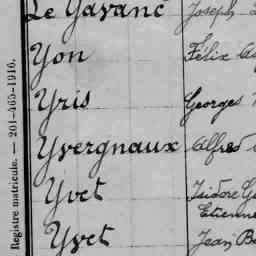 Le Gavanc Joseph
Yon Félix
Yris Georges
Yvergnaux Alfred
Yvet Isidore
Etienne
Yvet Jean
Registre matricule. — 201-465-1910.